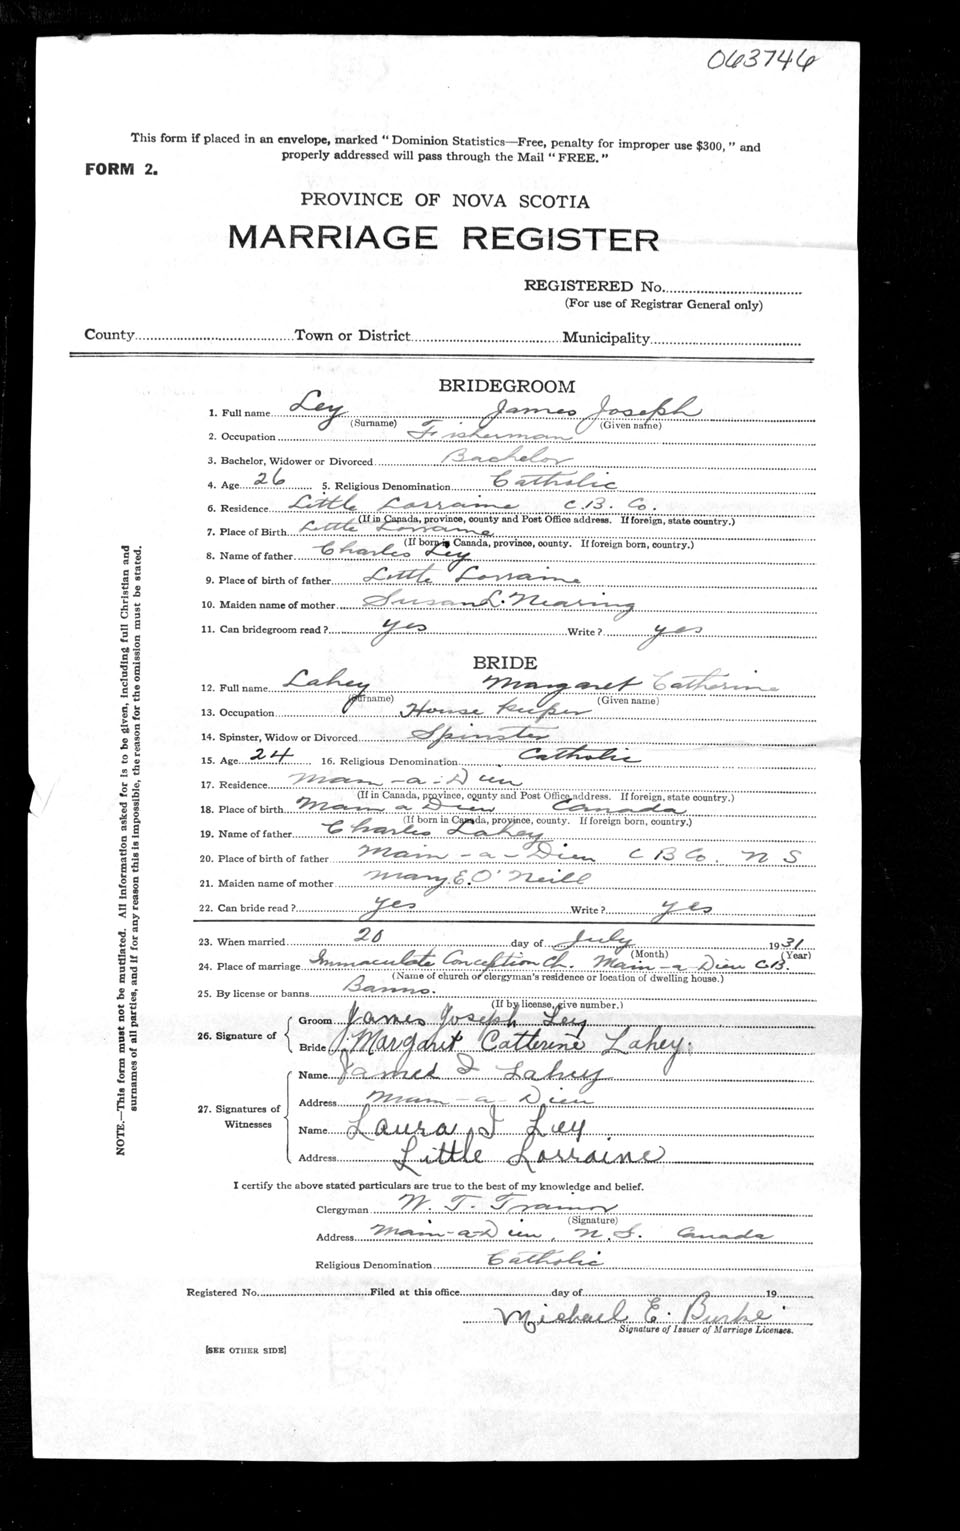 063746
This form if placed in an envelope, marked "Dominion Statistics—Free, penalty for improper use $300," and
properly addressed will pass through the Mail "FREE."
FORM 2.
PROVINCE OF NOVA SCOTIA
MARRIAGE REGISTER
REGISTERED No.
(For use of Registrar General only)
County Town or District Municipality
BRIDEGROOM
1. Full name Ley James Joseph
(Surname) (Given name)
2. Occupation Fisherman
3. Bachelor, Widower or Divorced Bachelor
4. Age 26 5. Religious Denomination Catholic
6. Residence Little Lorraine C.B. Co.
(If in Canada, province, county and Post Office address. If foreign, state country.)
7. Place of Birth Little Lorraine
(If born in Canada, province, county. If foreign born, country.)
8. Name of father Charles Ley
9. Place of birth of father Little Lorraine
10. Maiden name of mother Susan L. Nearing
11. Can bridegroom read? yes Write? yes
BRIDE
12. Full name Lahey Margaret Catherine
(Surname) (Given name)
13. Occupation House Keeper
14. Spinster, Widow or Divorced Spinster
15. Age 24 16. Religious Denomination Catholic
17. Residence Main-a-Dieu
(If in Canada, province, county and Post Office address. If foreign, state country.)
18. Place of birth Main a Dieu Canada
(If born in Canada, province, county. If foreign born, country.)
19. Name of father Charles Lahey
20. Place of birth of father Main-a-Dieu C B Co. N S
21. Maiden name of mother Mary E. O'Neill
22. Can bride read? yes Write? yes
23. When married 20 day of July 1931
(Month) (Year)
24. Place of marriage Immaculate Conception Ch. Main-a-Dieu C.B.
(Name of church or clergyman's residence or location of dwelling house.)
25. By license or banns Banns.
(If by license, give number.)
26. Signature of
Groom James Joseph Ley
Bride Margaret Catterine Lahey
27. Signatures of Witnesses
Name James I Lahey
Address Main-a-Dieu
Name Laura I Ley
Address Little Lorraine
I certify the above stated particulars are true to the best of my knowledge and belief.
Clergyman W. T.
(Signature)
Address Main-a-Dieu, N.S. Canada
Religious Denomination Catholic
Registered No. Filed at this office day of 19
Michael E. Burke
Signature of Issuer of Marriage Licenses.
[SEE OTHER SIDE]
NOTE.—This form must not be mutilated. All information asked for is to be given, including full Christian and
surnames of all parties, and if for any reason this is impossible, the reason for the omission must be stated.